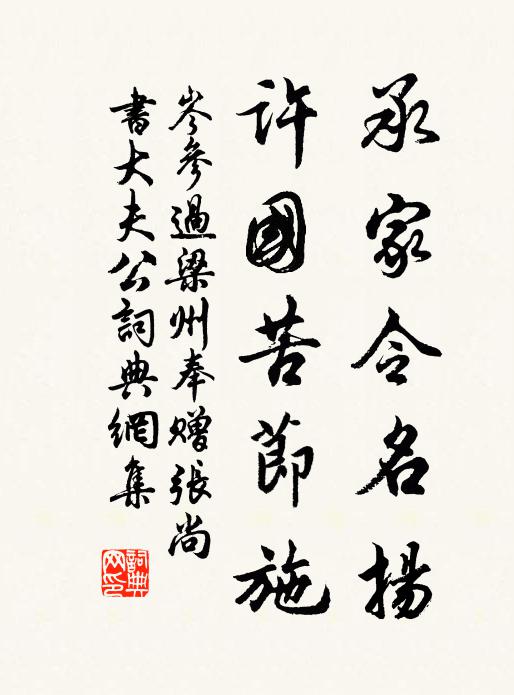 承家令名揚
許國苦節施
岑參過梁州奉贈張尚
書大夫公詞典網集
詞典網印